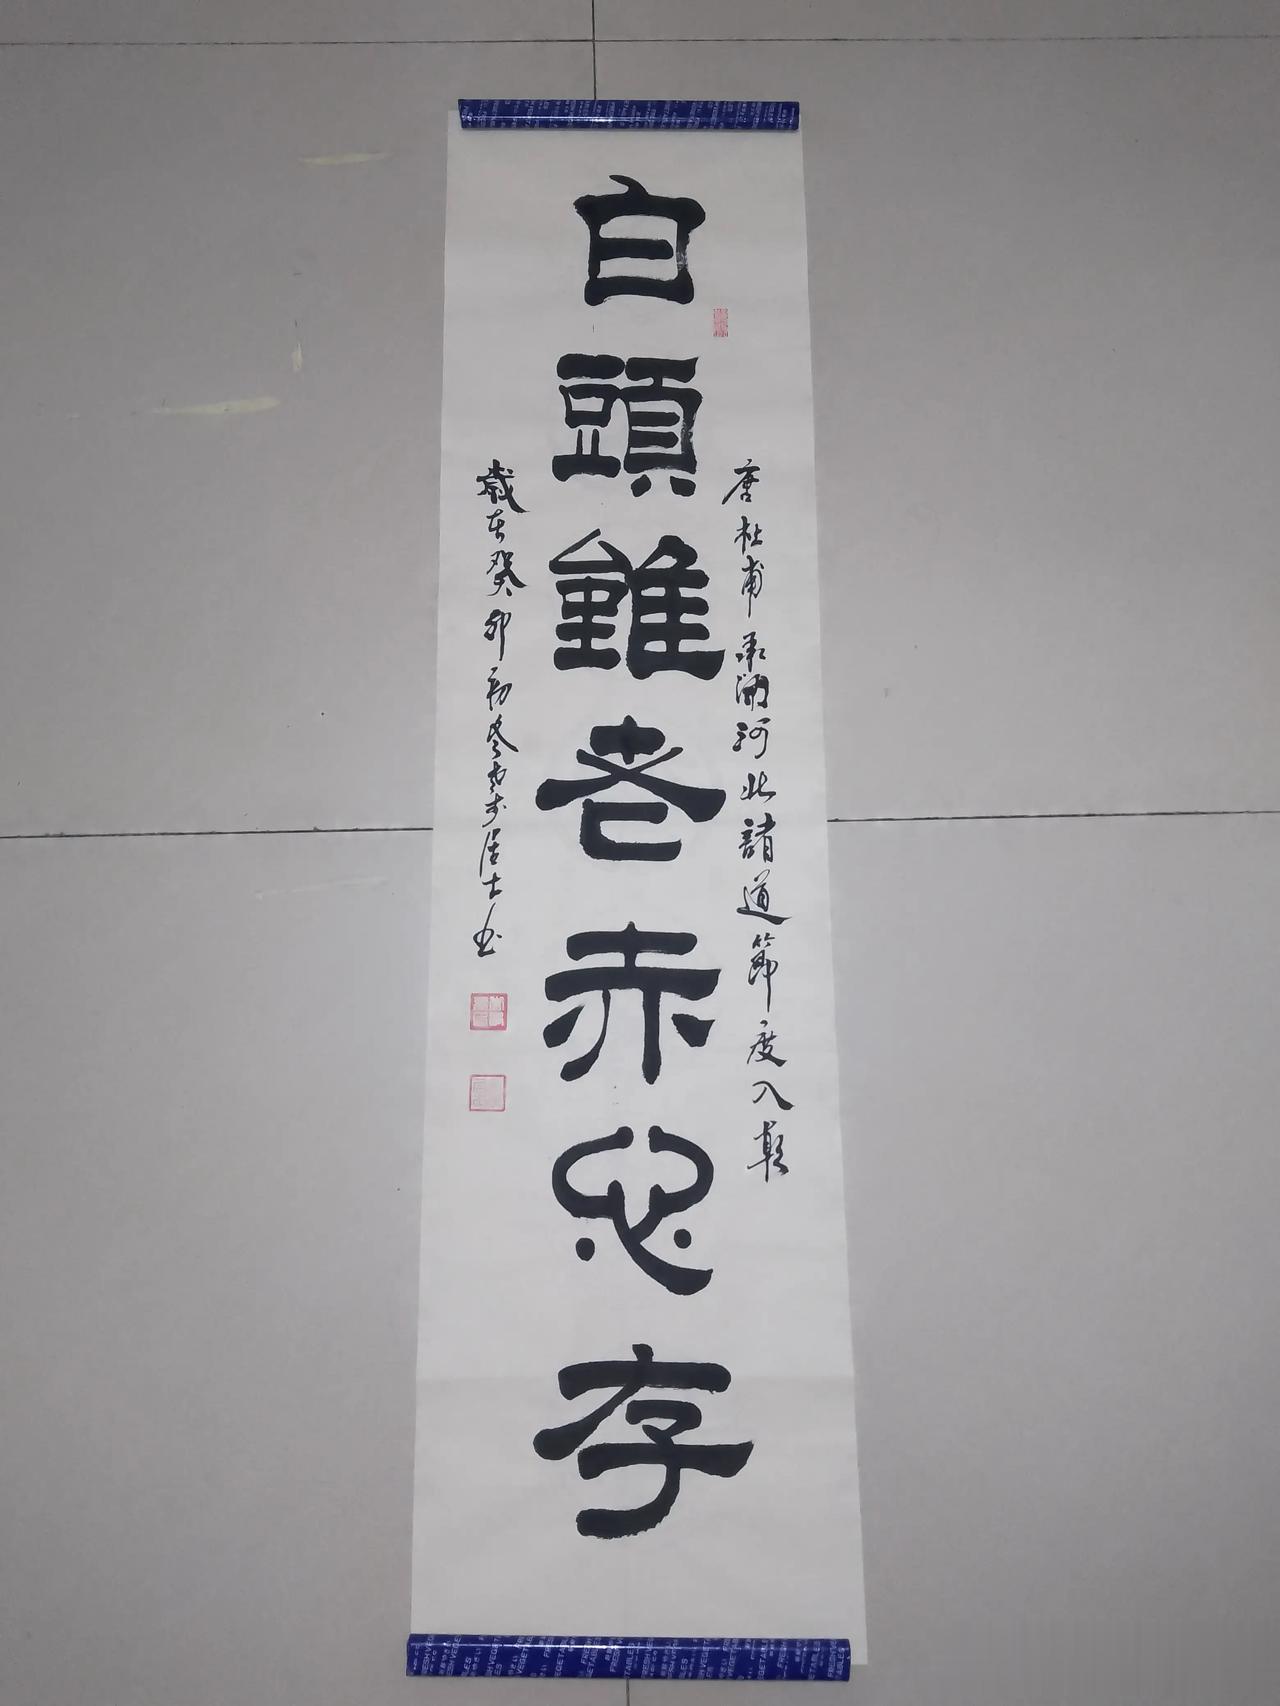 唐杜甫承河北諸道節度入朝
白頭雖老赤心存
歲在癸卯初冬居士书
FRESH VEGETABLES